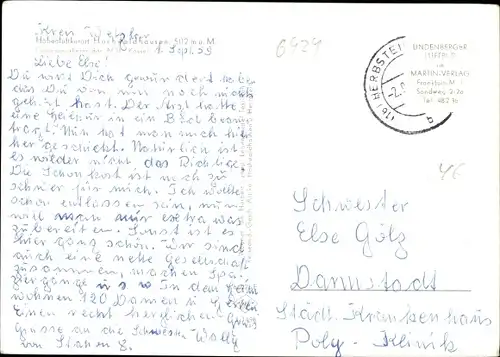 Höhenluftkurort
1. Sept. 59
Liebe Else!
Du wirst Dich gewundert haben
das Du von mir noch nichts
gehört hast. Der Arzt hatte
eine Heilkur in ein Bad bean-
tragt. Nun hat man mich hier
her geschickt. Natürlich ist
es wieder nicht das Richtige.
Die Schonkost ist noch zu
schwer für mich. Ich wollte
schon entlassen sein, nun
will man mir extra was
zubereiten. Sonst ist es
hier ganz schön. Wir sind
auch eine nette Gesellschaft
zusammen, machen Spa-
ziergänge u s w In dem Heim
wohnen 120 Damen u
Einen recht herzlichen Gruß
Grüsse an die Schwestern Wally
von Station 8.
6929
(16) HERBSTEI
b
LINDENBERGER
im
MARTIN-VERLAG
Frankfurt
Sandweg
Tel.
Schwester
Else Gölz
Darmstadt
Städt. Krankenhaus
Poly-Klinik